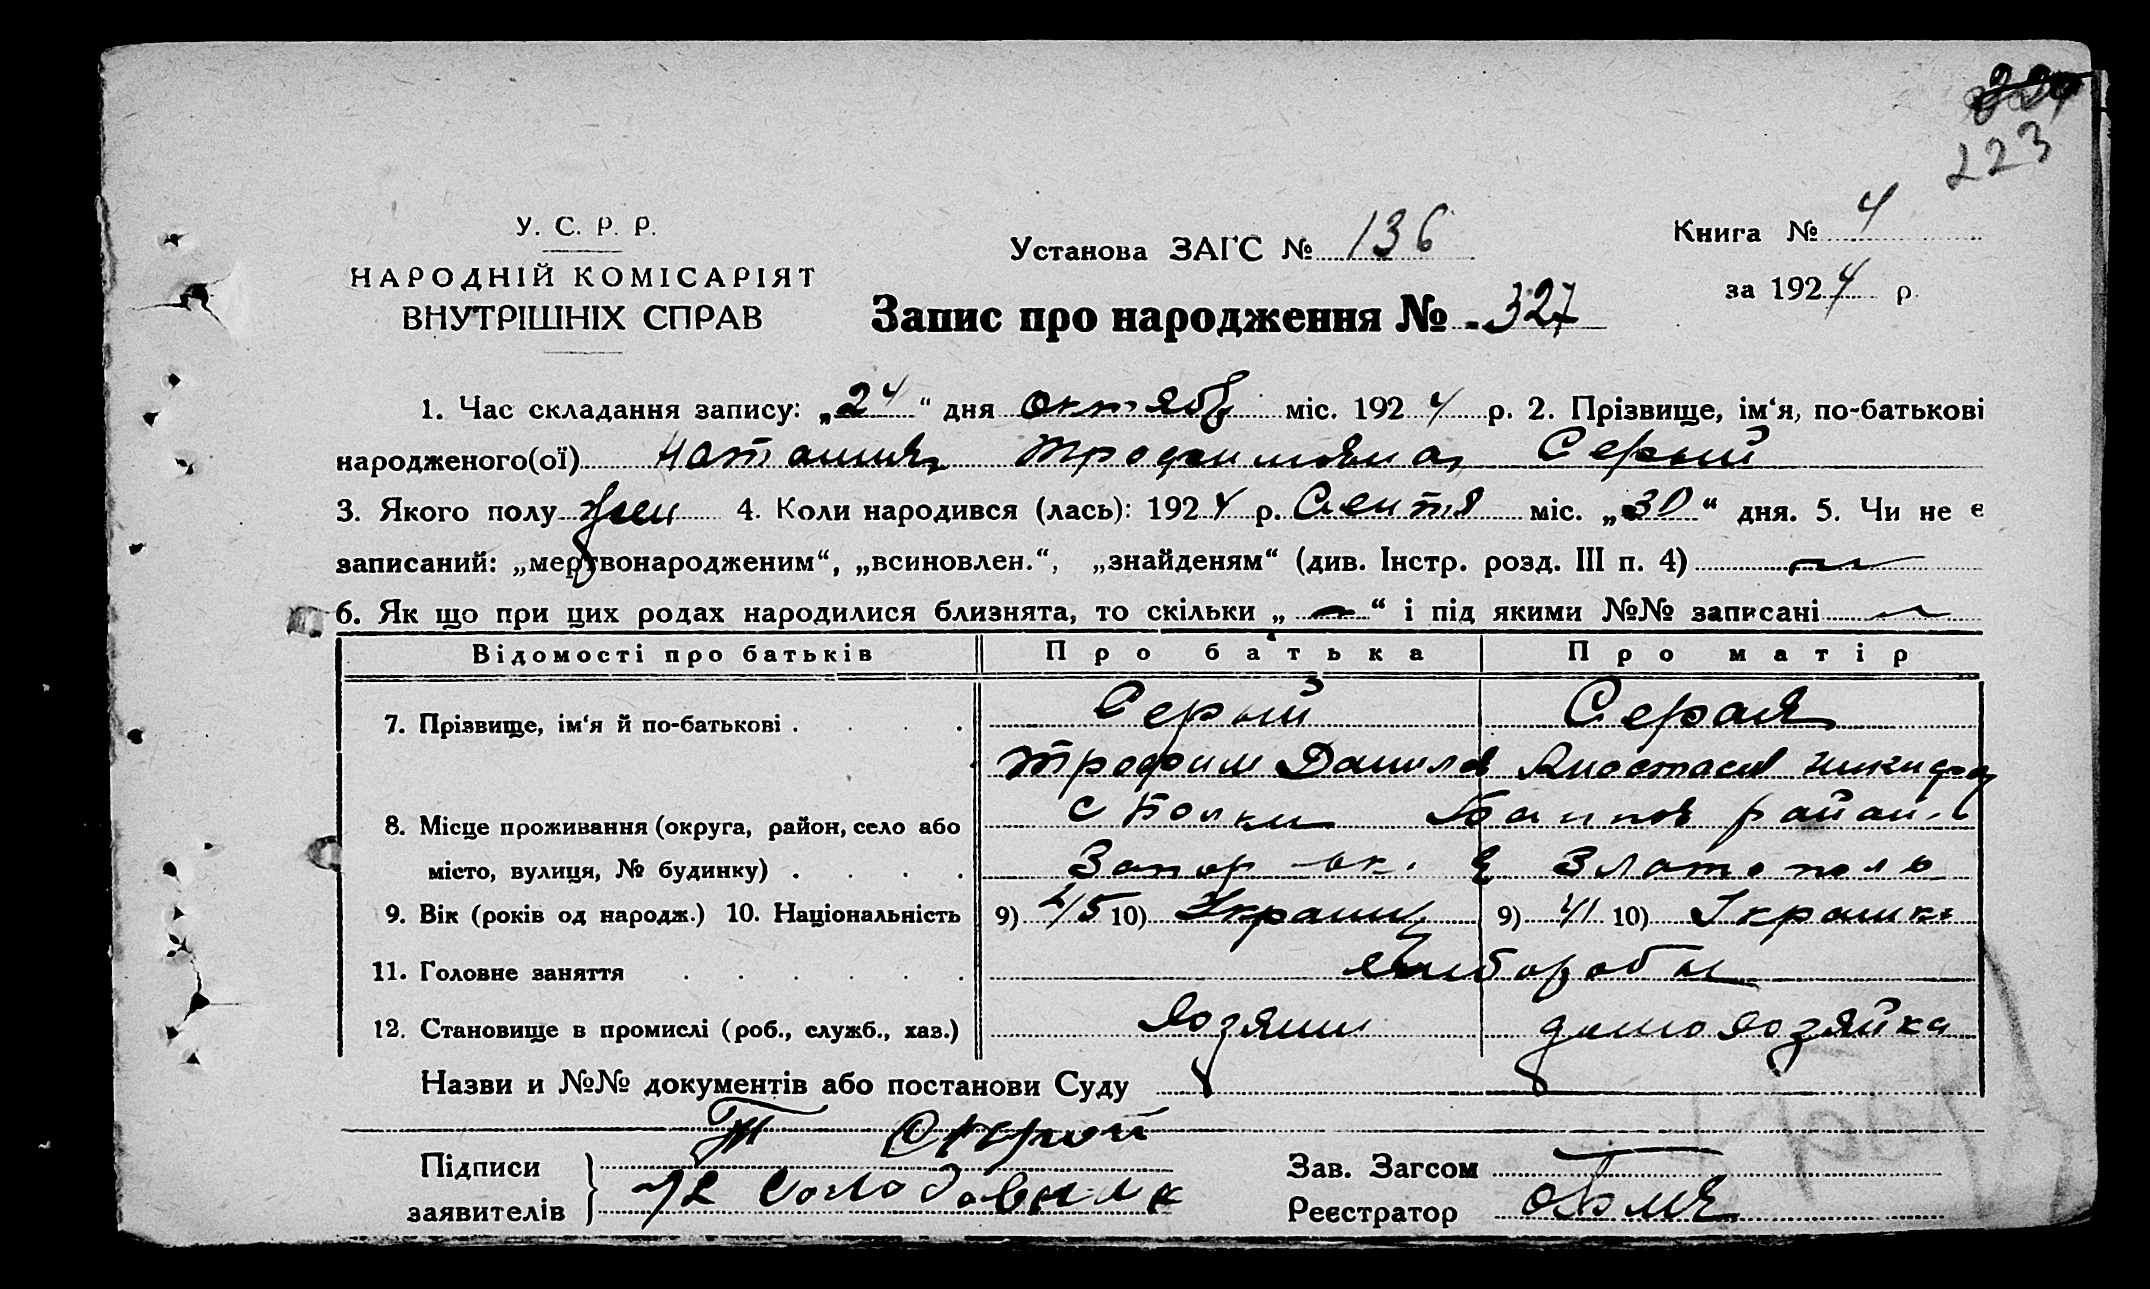 223
У. С. Р. Р.
НАРОДНІЙ КОМІСАРІЯТ
ВНУТРІШНІХ СПРАВ
Установа ЗАГС № 136
Книга № 4
за 1924 р.
Запис про народження № 327
1. Час складання запису: „24“ дня октяб міс. 1924 р. 2. Прізвище, ім‘я, по-батькові
народженого(ої) Серый
3. Якого полу жен 4. Коли народився (лась): 1924 р. Сентя міс. „30“ дня. 5. Чи не є
записаний: „мертвонародженим“, „всиновлен.“, „знайденям“ (див. Інстр. розд. III п. 4)
6. Як що при цих родах народилися близнята, то скільки „ “ і під якими №№ записані
Відомості про батьків Про батька Про матір
7. Прізвище, ім‘я й по-батькові . . . . Серый Серая
Трофим Данилов Анастасия никифор
8. Місце проживання (округа, район, село або район
місто, вулиця, № будинку) . . . . Запор ок. Златополь
9. Вік (років од народж.) 10. Національність 9) 45 10) Украин 9) 41 10) Украинк
11. Головне заняття . . . . . . хлібороби
12. Становище в промислі (роб., служб., хаз.) хозяин домохозяйка
Назви и №№ документів або постанови Суду
Т Серой
Підписи Зав. Загсом
заявителів Солодовник Реєстратор